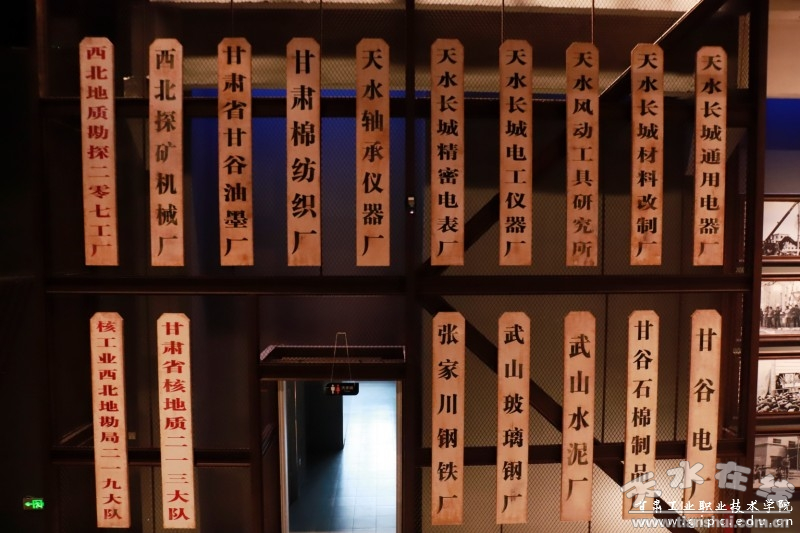 西北地质勘探二零七工厂
西北探矿机械厂
甘肃省甘谷油墨厂
甘肃棉纺织厂
天水轴承仪器厂
天水长城精密电表厂
天水长城电工仪器厂
天水风动工具研究所
天水长城材料改制厂
天水长城通用电器厂
核工业西北地勘局二一九大队
甘肃省核地质二一三大队
张家川钢铁厂
武山玻璃钢厂
武山水泥厂
甘谷石棉制品
甘谷电厂
天水在线
甘肃工业职业技术学院